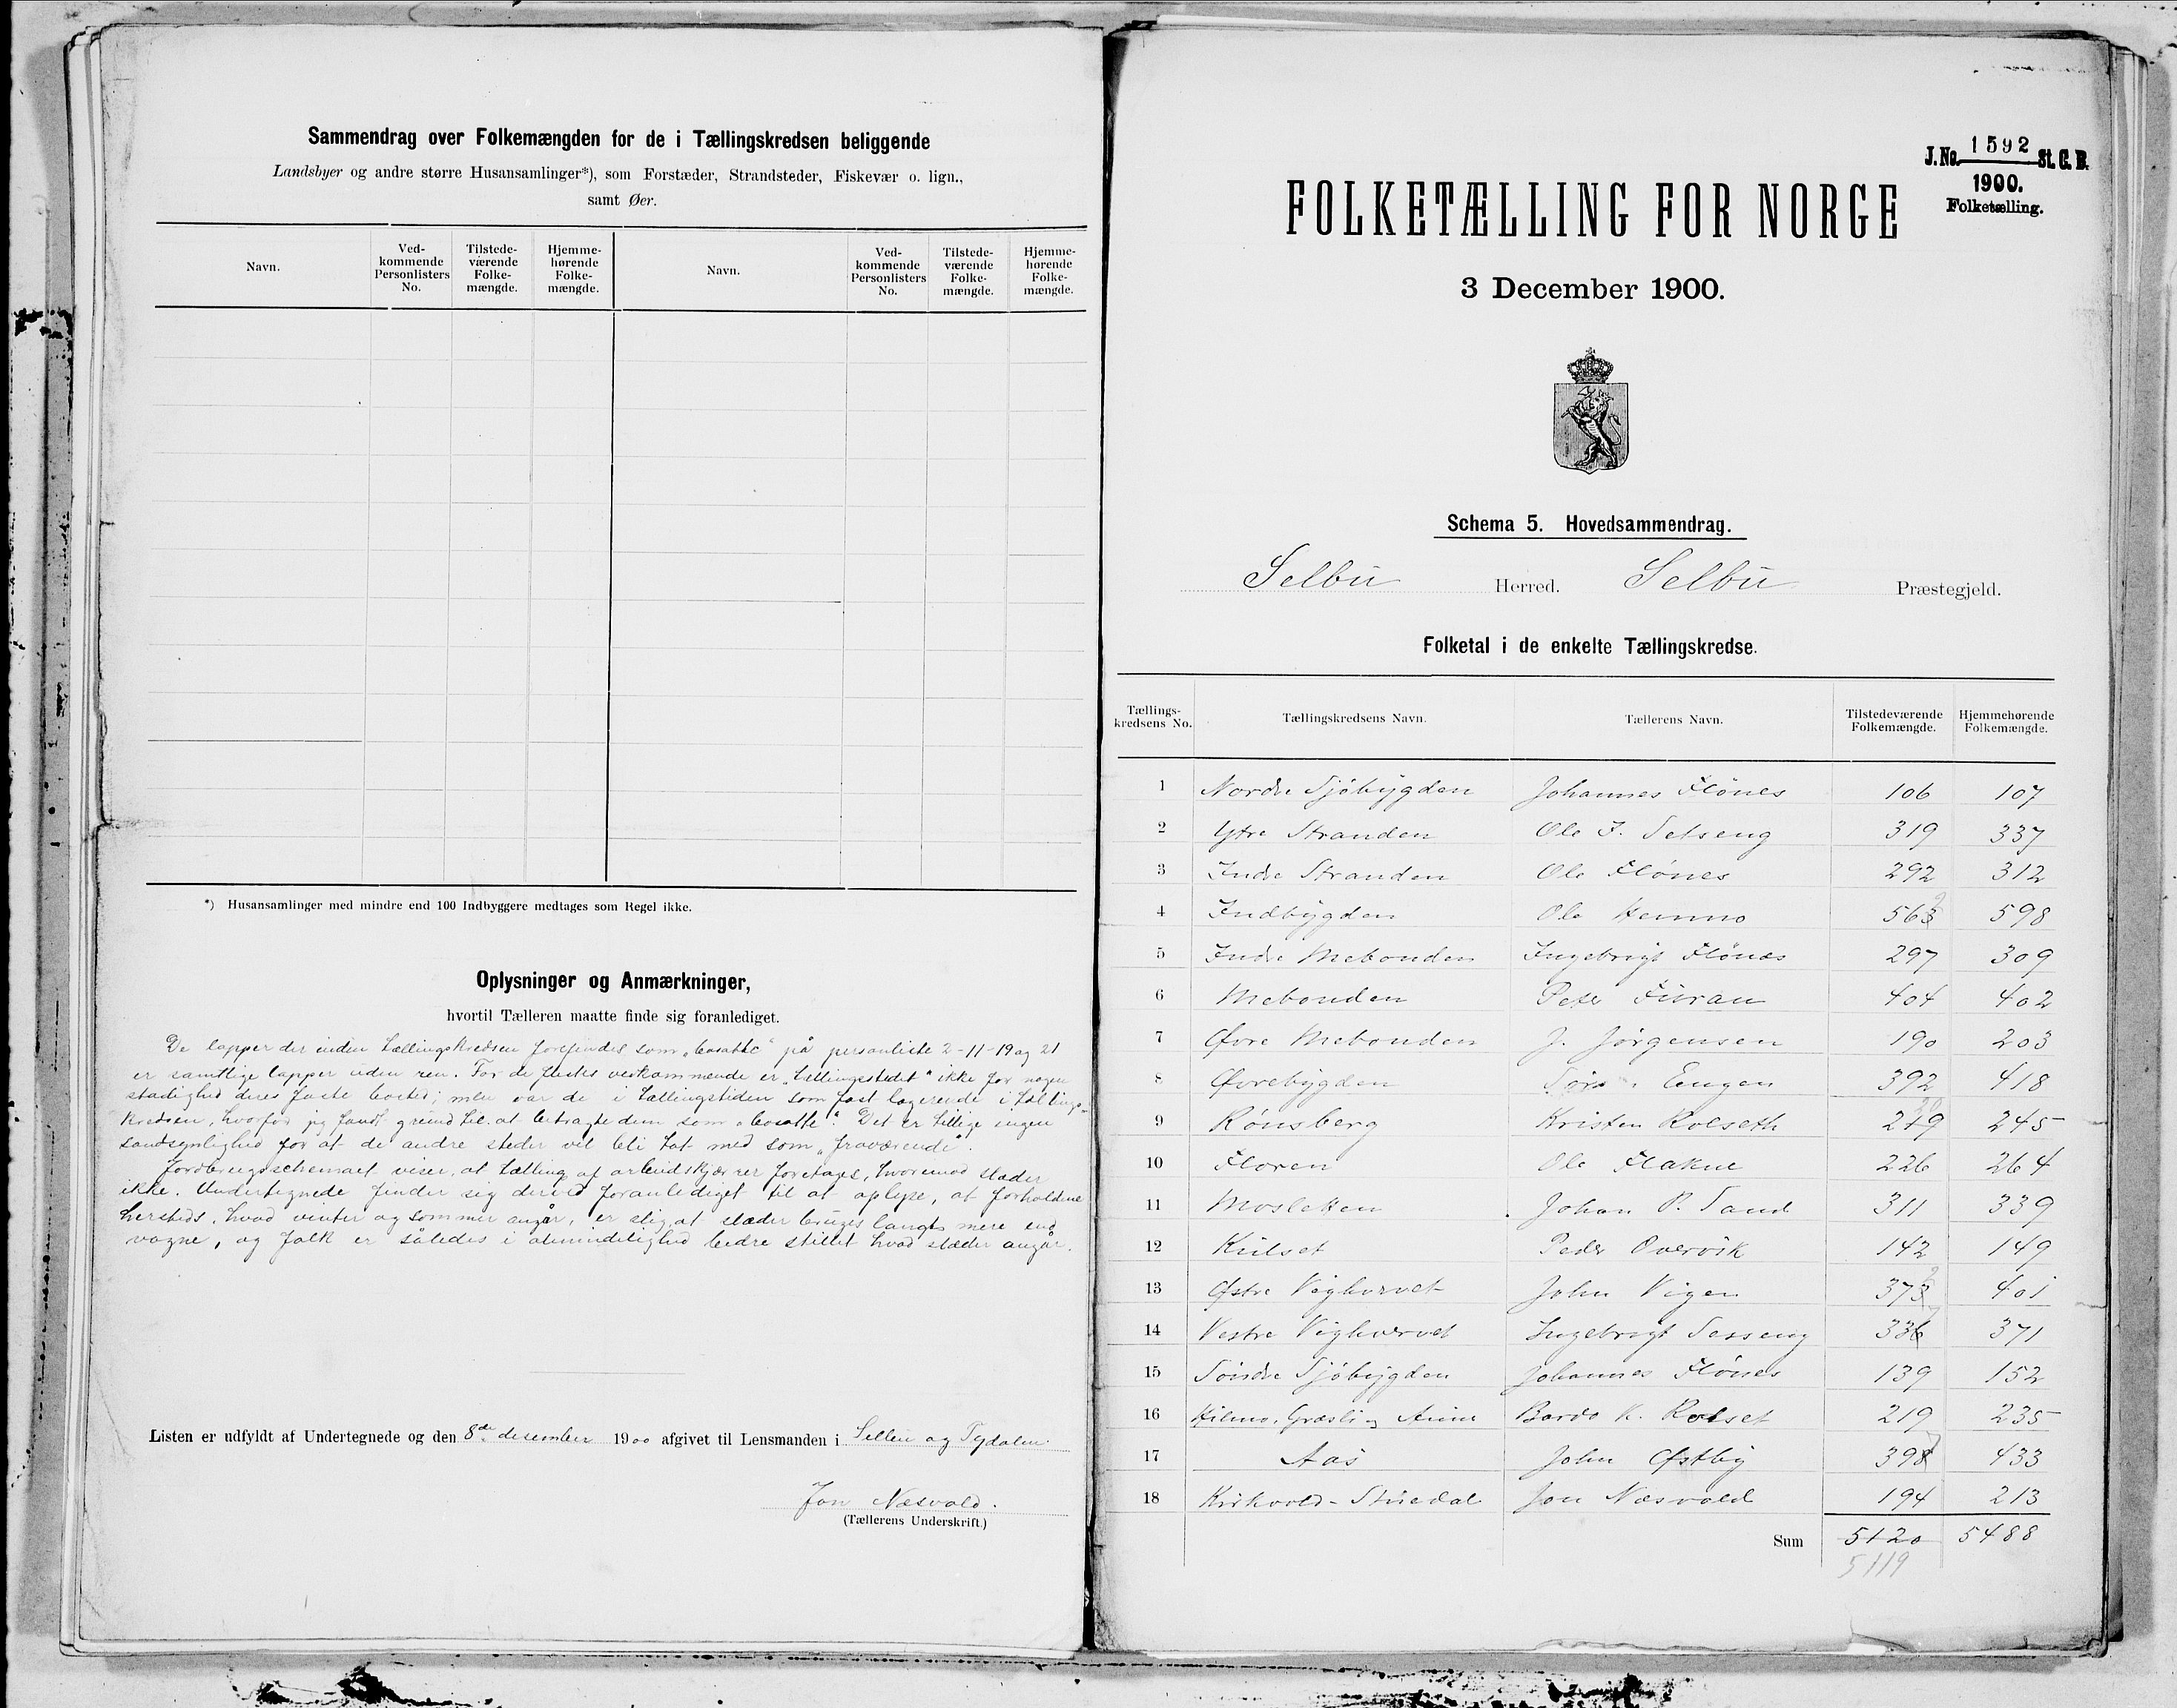 Sammendrag over Folkemængden for de i Tællingskredsen beliggende
Landsbyer og andre større Husansamlinger*), som Forstæder, Strandsteder, Fiskevær o. lign.,
samt Øer.
Navn.
Ved-
kommende
Personlisters
No.
Tilstede-
værende
Folke-
mængde.
Hjemme-
hørende
Folke-
mængde.
Navn.
Ved-
kommende
Personlisters
No.
Tilstede-
værende
Folke-
mængde.
Hjemme-
hørende
Folke-
mængde.
*) Husansamlinger med mindre end 100 Indbyggere medtages som Regel ikke.
Oplysninger og Anmærkninger,
hvortil Tælleren maatte finde sig foranlediget.
De lapper der inden tællingskredsen forefindes som „bosatte" på personliste 2-11-19 og 21
er samtlige lapper uden ren. For de flestes vedkommende er „tællingsstedet" ikke for nogen
stadighed deres faste bosted; men var de i tællingstiden som fast logerende i tællings-
kredsen, hvorfor jeg fandt grund til at betragte dem som „bosatte". Det er tillige ingen
sandsynlighed for at de andre steder vil bli tat med som „fraværende".
Jordbrugsschemaet viser, at tælling af arbeidskjærrer foretages, hvorimod slæder
ikke. Undertegnede finder sig derved foranlediget til at oplyse, at forholdene
hersteds, hvad vinter og sommer angår, er slig, at slæder bruges langt mere end
vogne, og folk er således i almindelighed bedre stillet hvad slæder angår.
Listen er udfyldt af Undertegnede og den 8de desember 1900 afgivet til Lensmanden i Selbu og Tydalen.
Jon Næsvold.
(Tællerens Underskrift.)
J. No. 1592 St. C. B.
1900.
Folketælling.
FOLKETÆLLING FOR NORGE
3 December 1900.
Schema 5. Hovedsammendrag.
Selbu Herred. Selbu Præstegjeld.
Folketal i de enkelte Tællingskredse.
Tællings-
kredsens No.
Tællingskredsens Navn.
Tællerens Navn.
Tilstedeværende
Folkemængde.
Hjemmehørende
Folkemængde.
1 Nordre Sjøbygden Johannes Flønes 106 107
2 Ytre Stranden Ole J. Setseng 319 337
3 Indre Stranden Ole Flønes 292 312
4 Indbygden Ole Hemmo 563 2 598
5 Indre Mebonden Ingebrigt Flønæs 297 309
6 Mebonden Peter Furan 404 402
7 Øvre Mebonden J. Jørgensen 190 203
8 Øvrebygden Engen 392 418
9 Rønsberg Kristen Rolseth 219 245
10 Floren Ole Flakne 226 264
11 Mosletten Johan P. Sand 311 339
12 Kulset Peder Overvik 142 149
13 Østre Vighvervet John Vigen 373 2 401
14 Vestre Vighvervet Ingebrigt Sesseng 336 7 371
15 Søndre Sjøbygden Johannes Flønes 139 152
16 Hilmo, Græsli og Aune Bardo K. Rolset 219 235
17 Aas John Østby 398 7 433
18 Kirkvold-Stuedal Jon Næsvold 194 213
Sum 5120 5488
5119